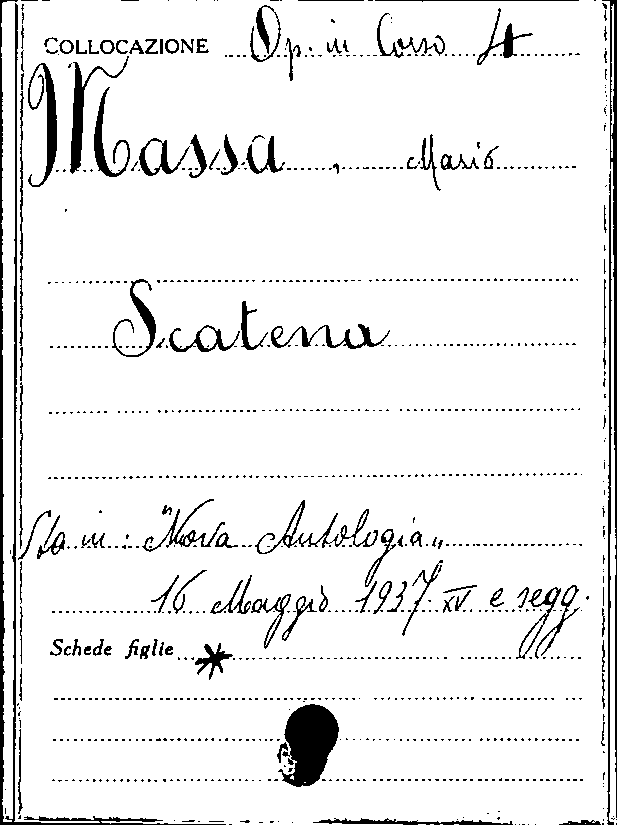 COLLOCAZIONE Op. in Corso 4
Massa, Mario
Scatena
Sta in: "Nova Antologia„
16 Maggio 1937. XV e segg.
Schede figlie *